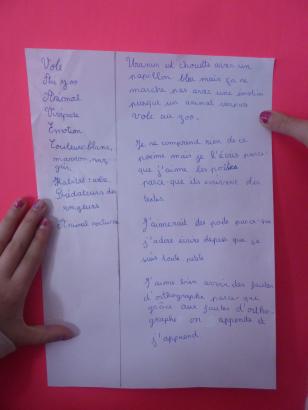 Vole
Au zoo
Animal
Vivipare
Emotion
Couleur: blanc,
marron, noir,
gris,
Habitat: arbre
Prédateurs des
rongeurs
Animal nocturne
Uranus et chouette avec un
papillon bleu mais ça ne
marche pas avec une émotion
puisqu'un animal vivipare
vole au zoo.
Je ne comprend rien de ce
poème mais je l'écris parce
que j'aime les poètes
parce que ils écrivent des
textes.
J'aimerait des poète parce-que
j'adore écrire depuis que je
suis toute petite
J'aime bien avoir des fautes
d'orthographe parce que
grâce aux fautes d'ortho-
graphe on apprend et
j'apprend.